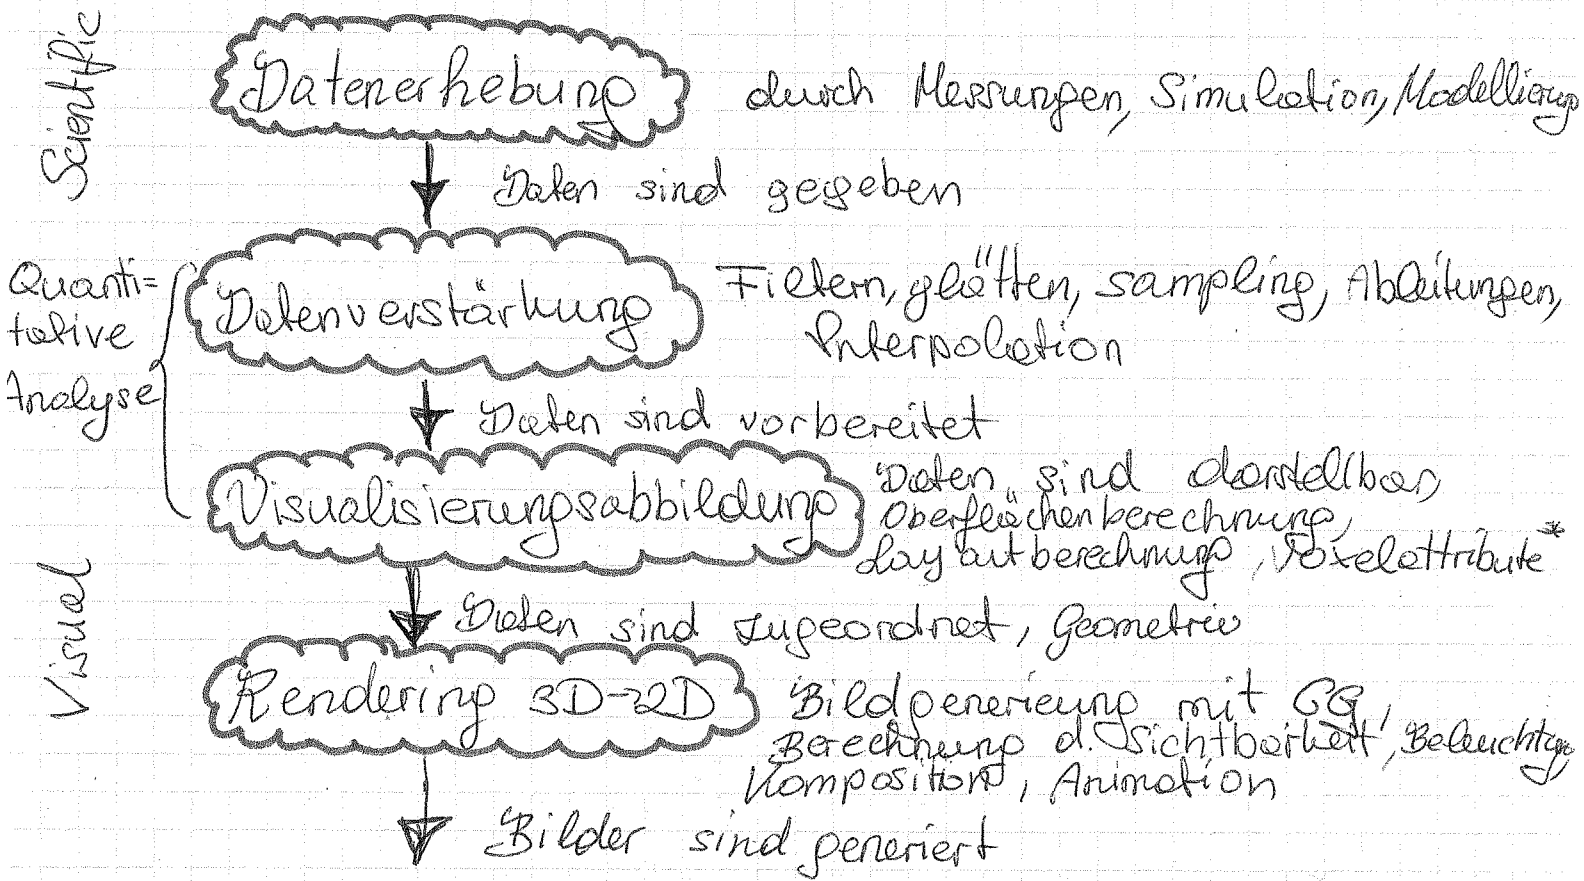 Scientific
Datenerhebung
durch Messungen, Simulation, Modellierung
Daten sind gegeben
Quanti=
tative
Analyse
Datenverstärkung
Filtern, glätten, sampling, Ableitungen,
Interpolation
Daten sind vorbereitet
Visualisierungsabbildung
Daten sind darstellbar,
Oberflächenberechnung,
Layoutberechnung, Voxelattribute*
Visual
Daten sind zugeordnet, Geometrie
Rendering 3D→2D
Bildgenerieung mit CG,
Berechnung d. Sichtbarkeit, Beleuchtung,
Komposition, Animation
Bilder sind generiert